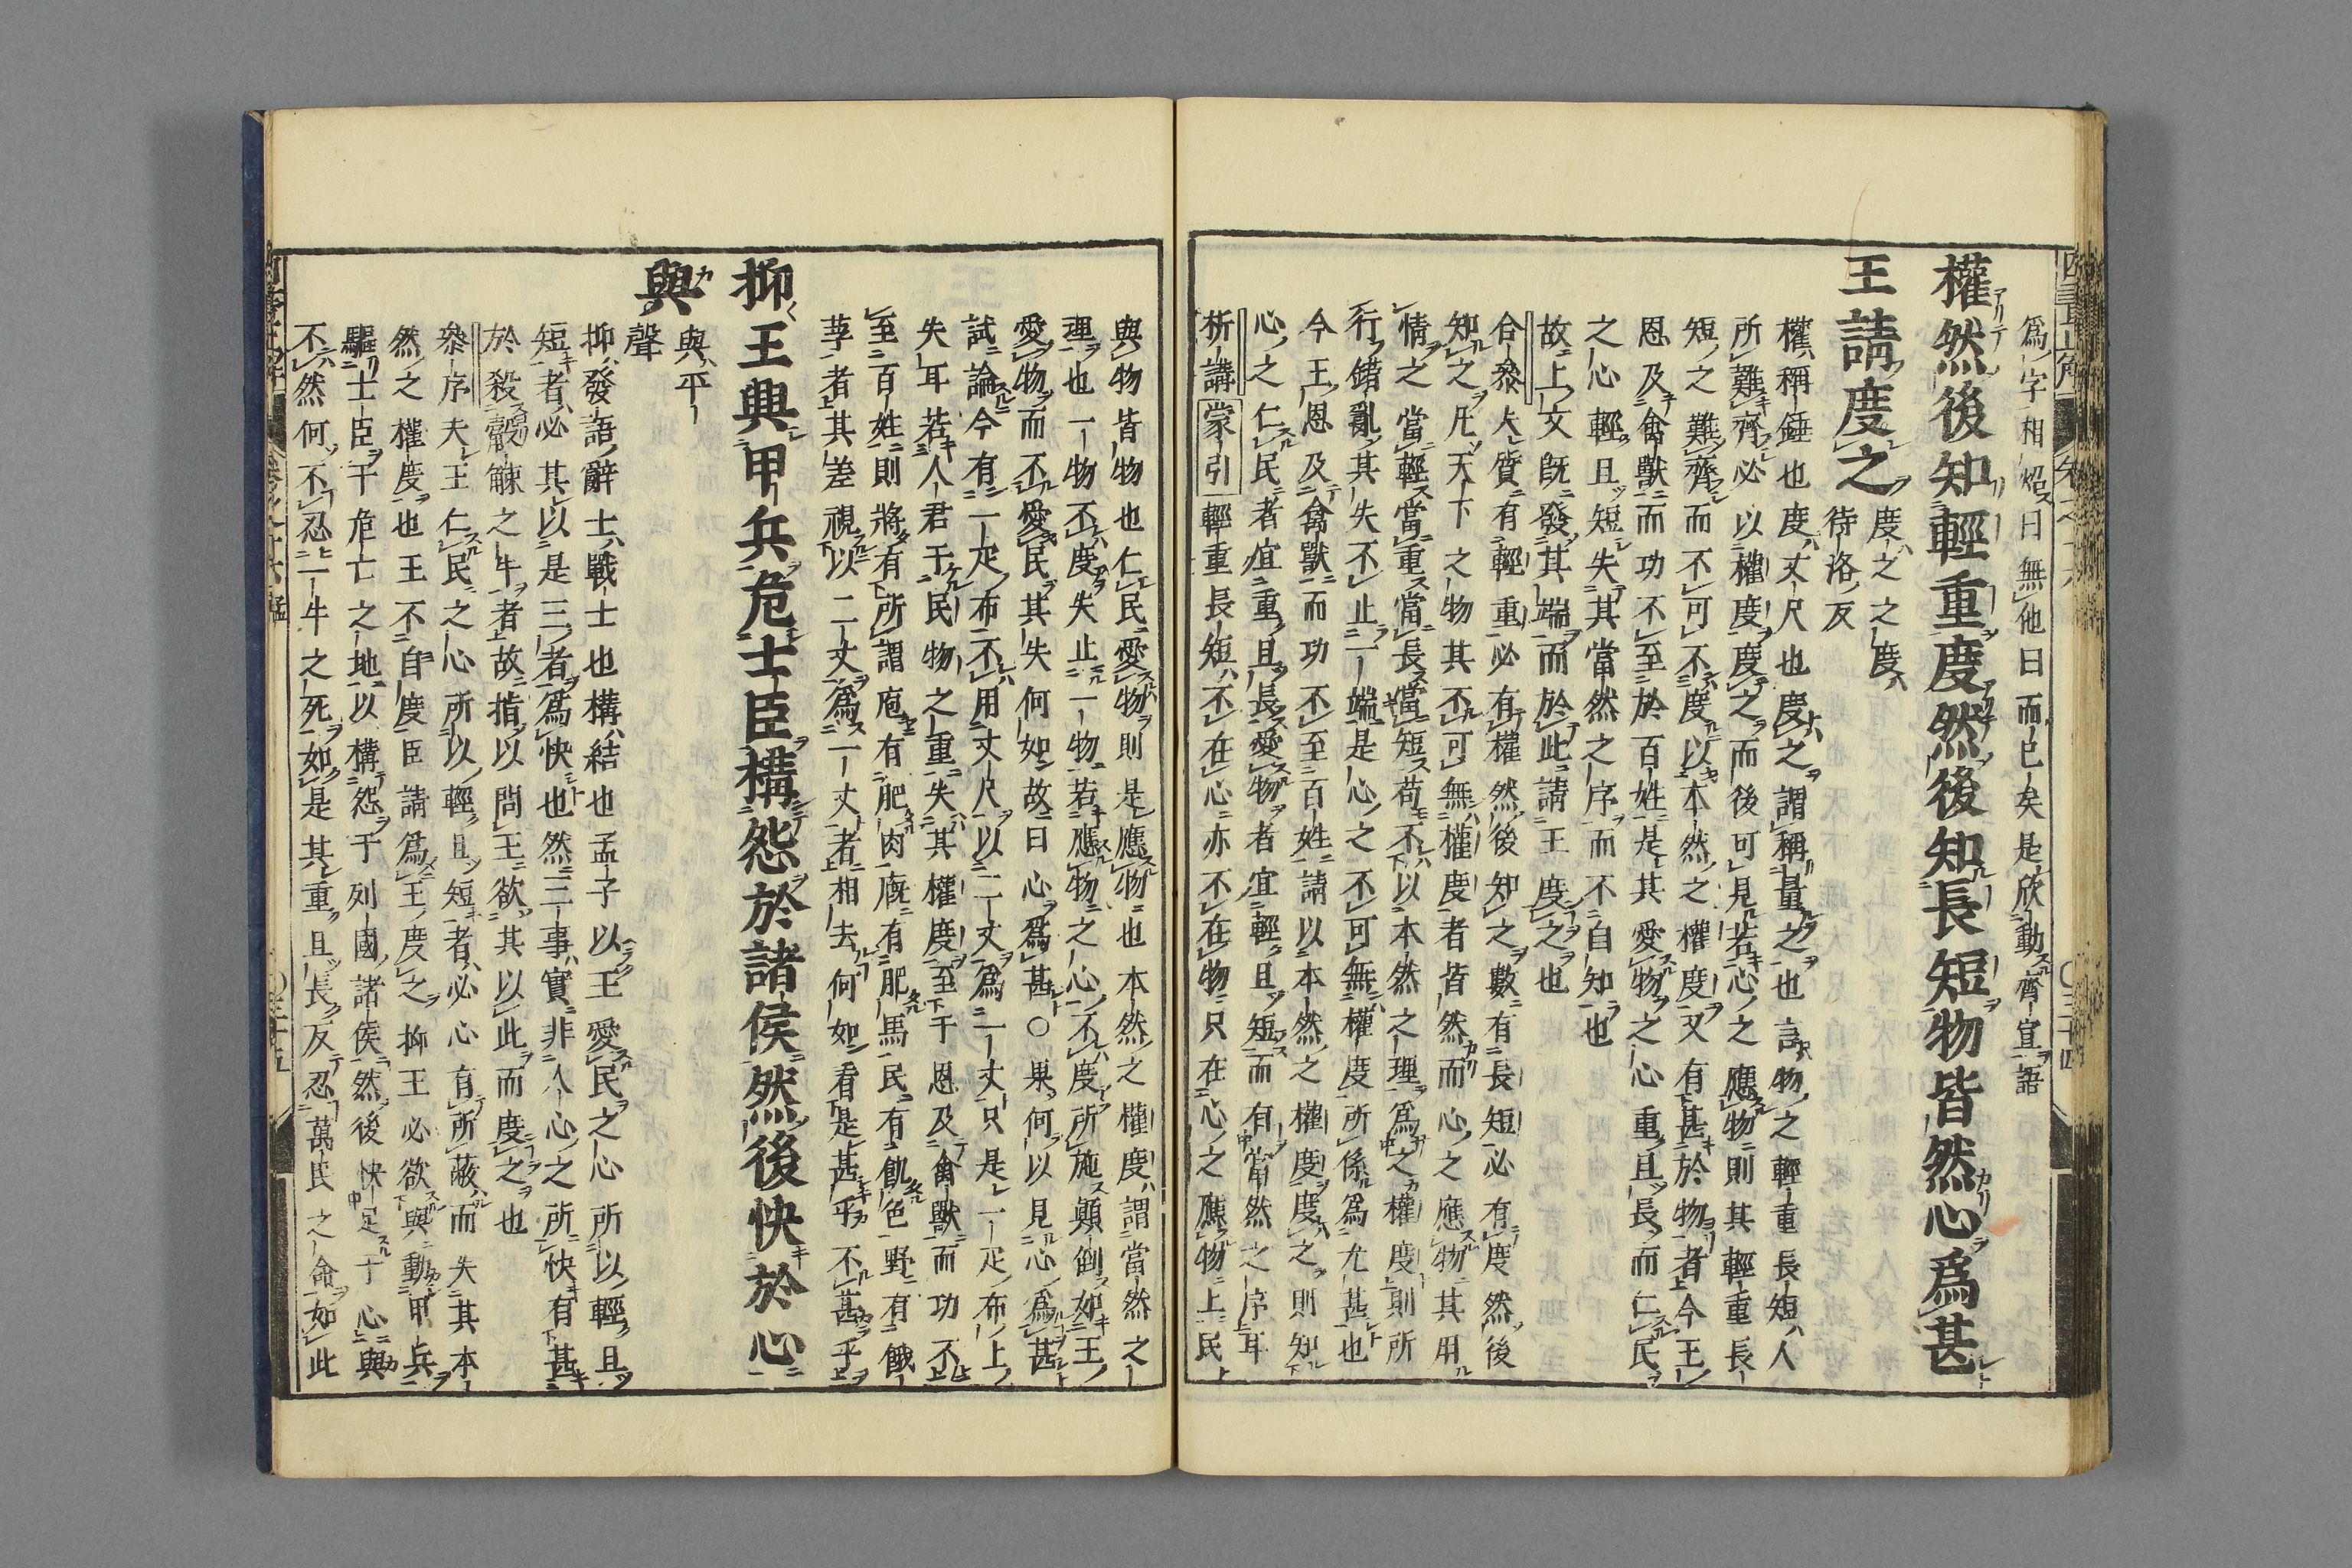 爲字相炤曰無他曰而已矣是欣動齊宣語
權然後知輕重度然後知長短物皆然心爲甚
王請度之
度之之度
待洛反
權稱錘也度丈尺也度之謂稱量之也言物之輕重長短人
所難齊必以權度度之而後可見若心之應物則其輕重長
短之難齊而不可不度以本然之權度又有甚於物者今王
恩及禽獸而功不至於百姓是其愛物之心重且長而仁民
之心輕且短失其當然之序而不自知也
故上文既發其端而於此請王度之也
合參大質有輕重必有權然後知之數有長短必有度然後
知之凡天下之物其不可無權度者皆然而心之應物其用
情之當輕當重當長當短苟不以本然之理爲之權度則所
行錯亂其失不止一端是心之不可無權度所係爲尤甚也
今王恩及禽獸而功不至百姓請以本然之權度度之則知
心之仁民者宜重且長愛物者宜輕且短而有當然之序耳
析講蒙引輕重長短不在心亦不在物只在心之應物上民
與物皆物也仁民愛物則是應物也本然之權度謂當然之
理也一物不度失止一物若應物之心不度所施顛倒如王
愛物而不愛民其失何如故曰心爲甚○果何以見心爲甚
試論今有一疋布不用丈尺以二丈爲一丈只是一疋布上
失耳若人君于民物之重失其權度至于恩及禽獸而功不
至百姓則將有所謂庖有肥肉廐有肥馬民有飢色野有餓
莩者其差視以二丈爲一丈者相去何如看是甚乎不甚乎
抑王興甲兵危士臣構怨於諸侯然後快於心
與
與平
聲
抑發語辭士戰士也構結也孟子以王愛民之心所以輕且
短者必其以是三者爲快也然三事實非人心之所快有甚
於殺觳觫之牛者故指以問王欲其以此而度之也
參序夫王仁民之心所以輕且短者必心有所蔽而失其本
然之權度也王不自度臣請爲王度之抑王必欲興動甲兵
驅士臣于危亡之地以構怨于列國諸侯然後快足于心與
不然何不忍一牛之死如是其重且長反忍萬民之命如此